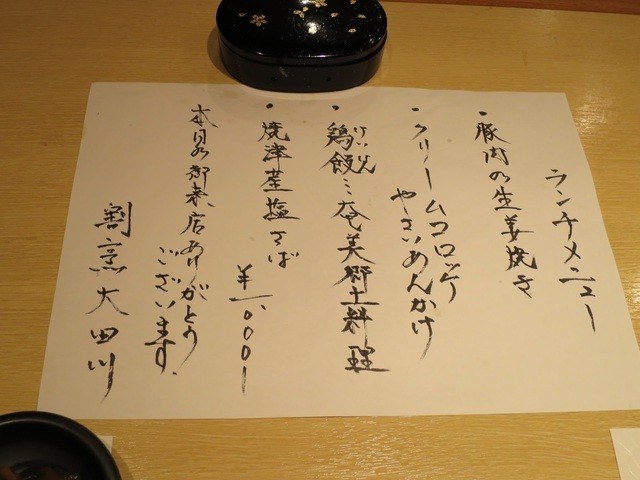 ランチメニュー
・豚肉の生姜焼き
・クリームコロッケ
やさいあんかけ
・鶏飯…奄美郷土料理
けいはん
・焼津産塩さば
¥1,000
本日は御来店ありがとう
ございます。
割烹大田川